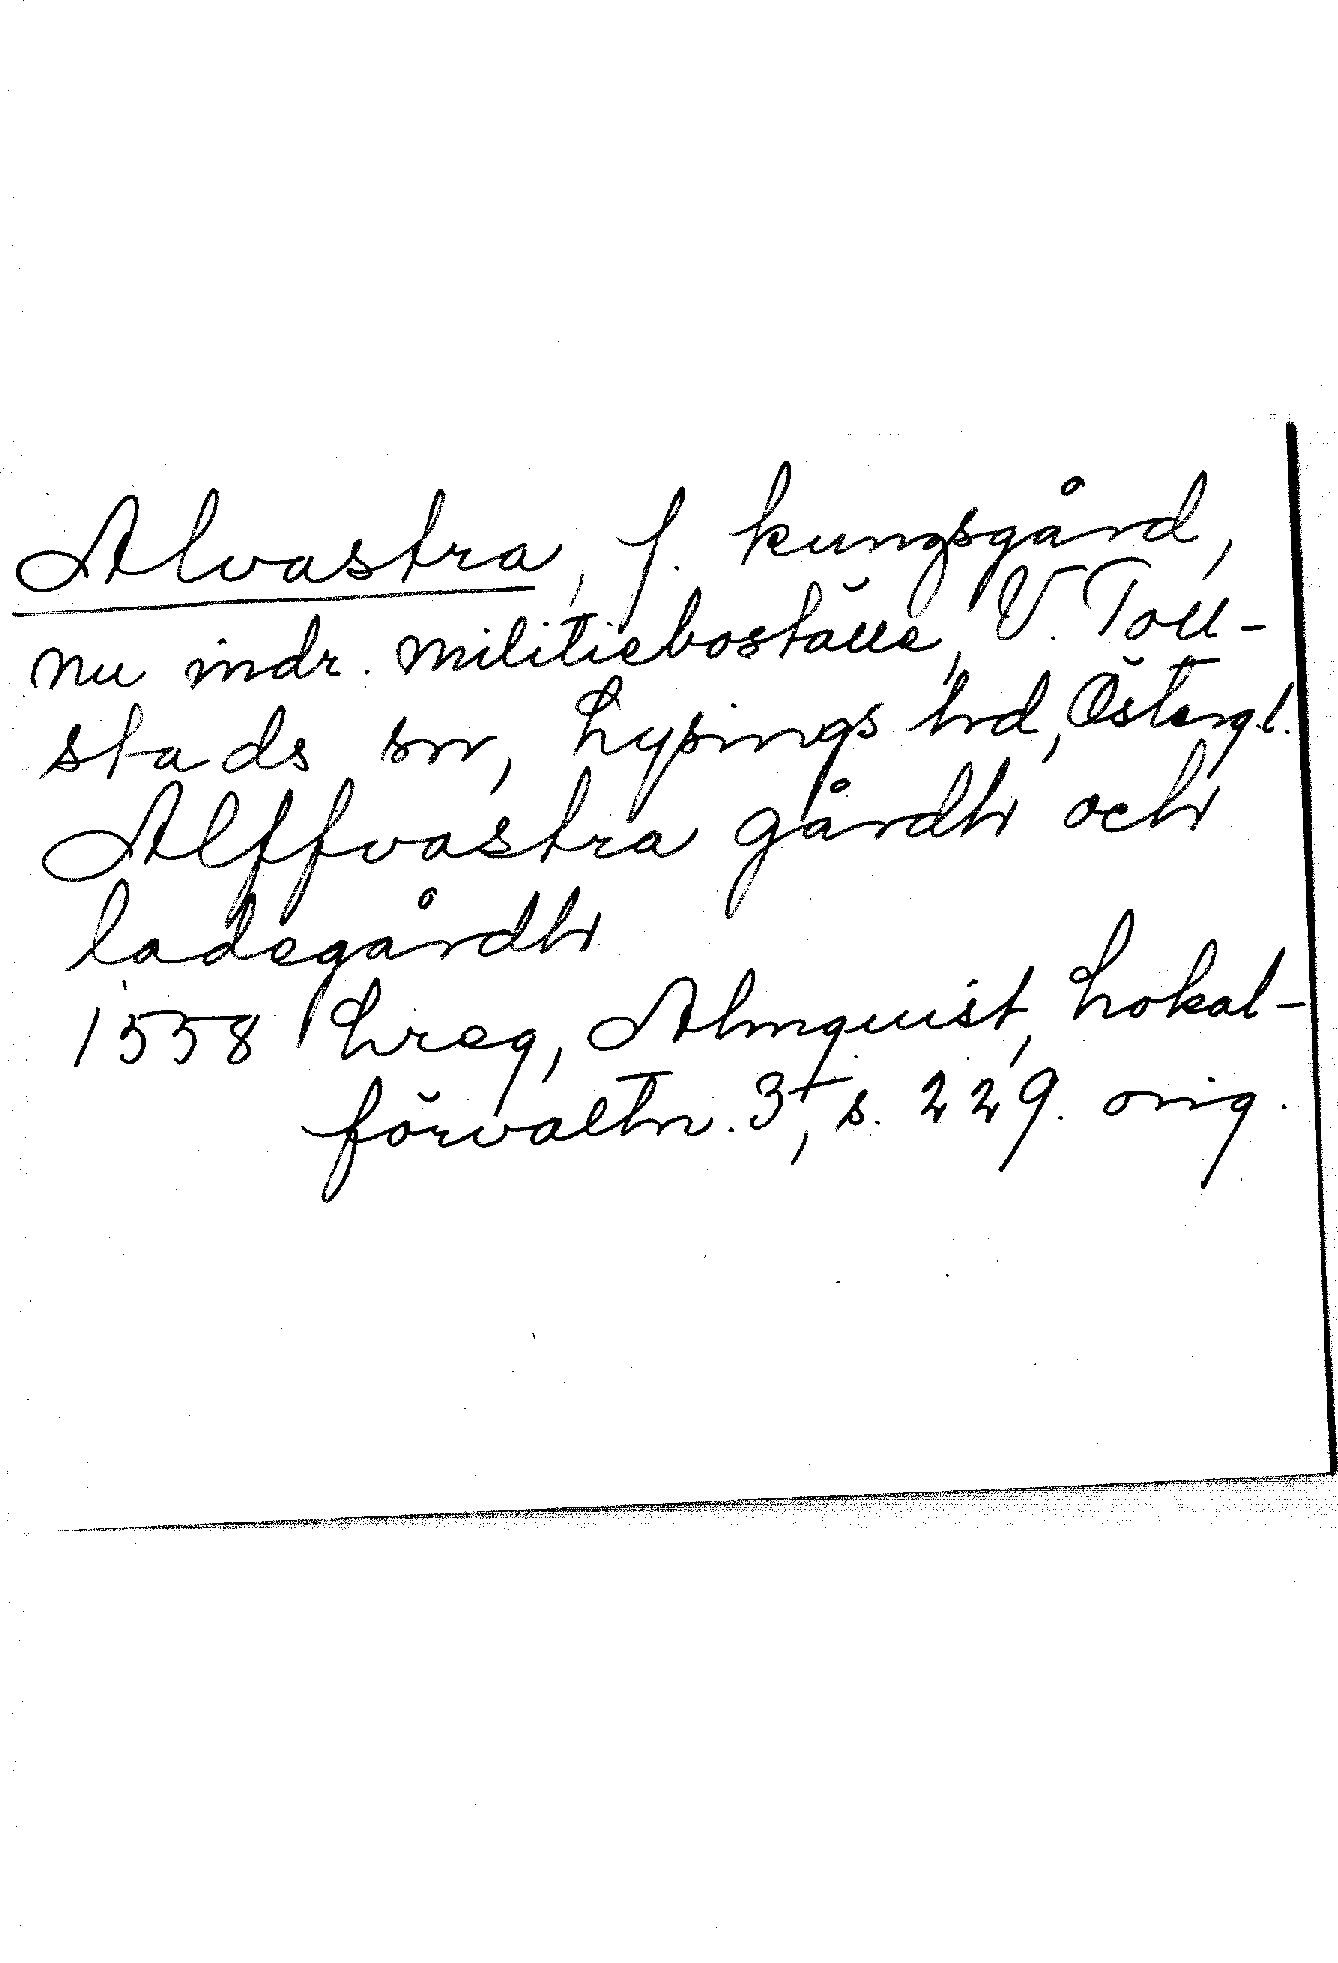 Alvastra, f. kungsgård,
nu indr. militieboställe, V. Toll-
stads sn, Lysings hd, Östergl.
Alffvastra gårdh och
ladegårdh
1558 Lreg, Almquist, Lokal-
förvaltn. 3, s. 229. orig.